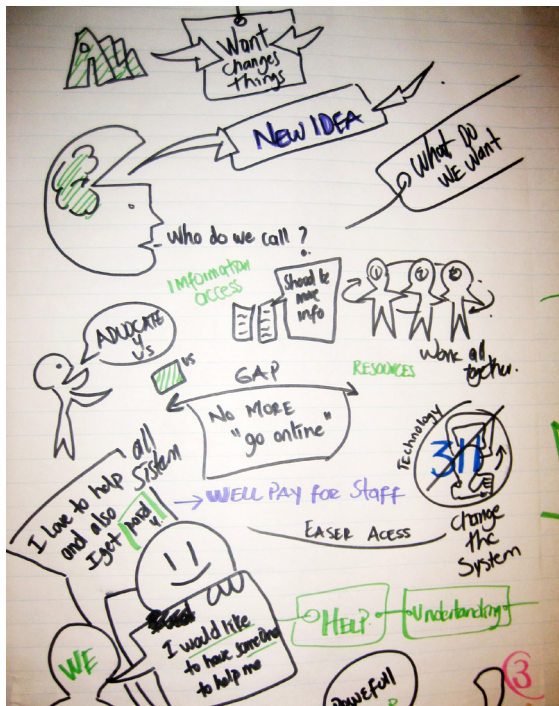 Want
changes
things
NEW IDEA
What Do
WE Want
Who do we call?
INFORMATION
access
Should be
more
info
Work all
together.
RESOURCES
ADVOCATE
4
US
US
GAP
No MORE
"go online"
Technology
311
change
the
System
all
System
I love to help
and also
I get paid
→ WELL PAY FOR STAFF
EASER ACESS
WE
I would like
to have someone
to help me
HELP
Understanding
POWEFULL
3